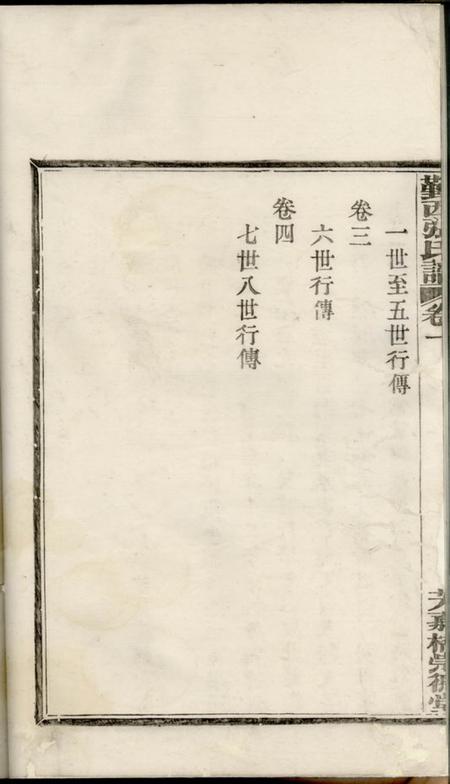 鄞西張氏譜 卷一
一世至五世行傳
卷三
六世行傳
卷四
七世八世行傳